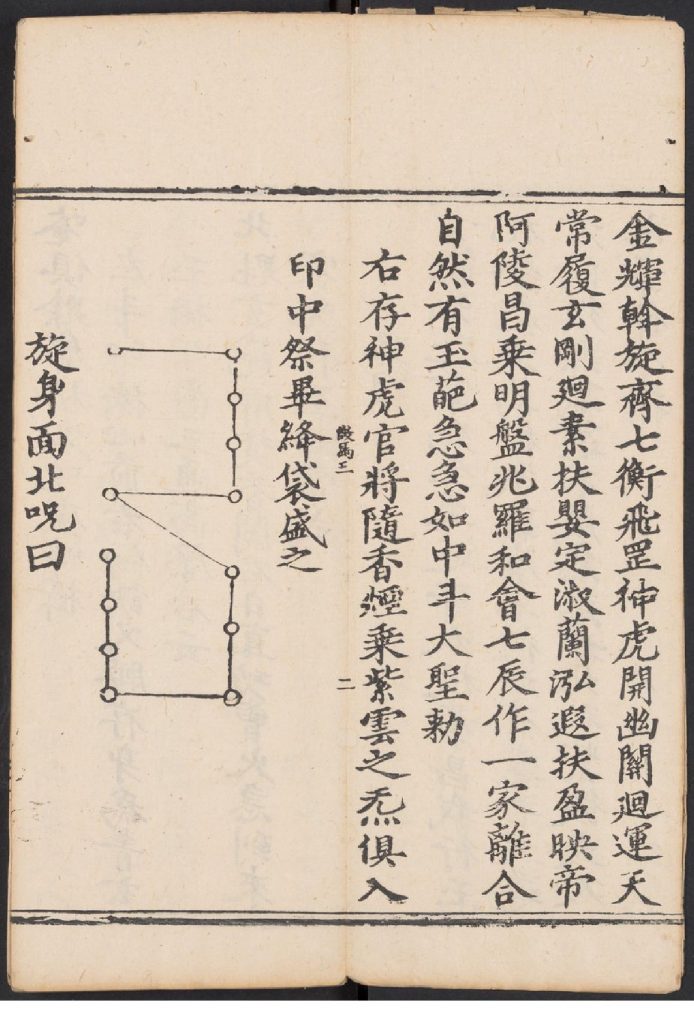 金輝斡旋齊七衡飛罡神虎開幽關迴運天
常履玄剛迴素扶嬰定淑蘭泓遐扶盈映帝
阿陵昌乗明盤兆羅和會七辰作一家離合
自然有玉葩急急如中斗大聖勑
右存神虎官將隨香煙乗紫雲之炁俱入
印中祭畢絳袋盛之
二
旋身面北咒曰